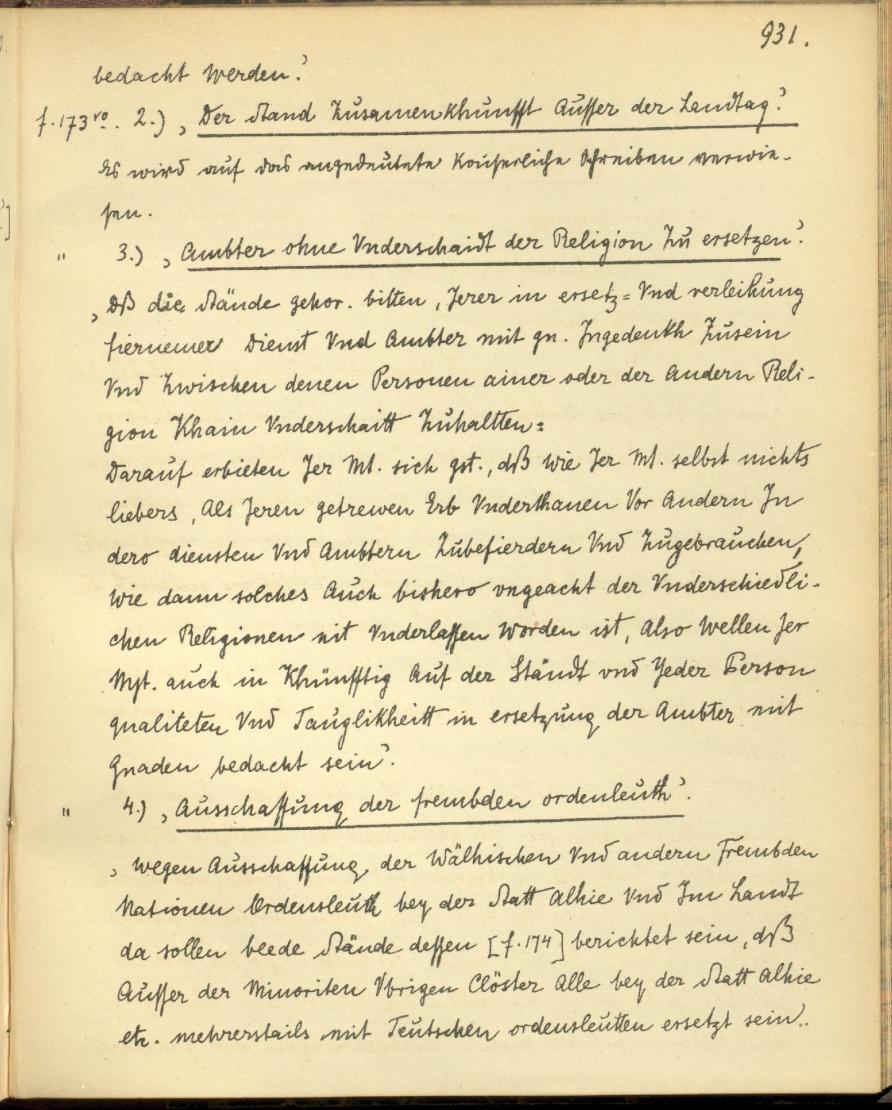 931.
bedacht werden.'
f. 173ʳᵒ. 2.) ‚Der Stand Zusamenkhunfft Ausser der Landtag.'
Es wird auf das angedeutete kaiserliche Schreiben verwie-
sen.
" 3.) ‚Ambter ohne Vnderschaidt der Religion Zu ersetzen'.
‚Dß die Stände gehor. bitten, Jerer in ersetz= Vnd verleihung
fiernemer Dienst Vnd Ambter mit gn. Jngedenkh Zusein
Vnd Zwischen denen Personen ainer oder der Andern Reli-
gion Khain Vnderschaitt Zuhaltten:
Darauf erbieten Jer Mt. sich gst., dß wie Jer Mt. selbst nichts
liebers, Als Jeren getrewen Erb Vnderthanen Vor Andern Jn
dero diensten Vnd Ambtern Zubefierdern Vnd Zugebrauchen,
Wie dann solches Auch bishero vngeacht der Vnderschiedli-
chen Religionen nit Vnderlassen Worden ist, Also Wellen Jer
Myt. auch in Khünfftig Auf der Ständt vnd Yeder Person
qualiteten Vnd Tauglikheitt in ersetzung der Ambter mit
Gnaden bedacht sein'.
" 4.) ‚Ausschaffung der frembden ordenleuth'.
‚Wegen Ausschaffung der Wälhischen Vnd andern Frembden
Nationen Ordensleuth bey der Statt Alhie Vnd Jm Landt
da sollen beede Stände dessen [f. 174] berichtet sein, dß
Ausser der Minoriten Vbrigen Clöster Alle bey der Statt Alhie
etc. mehrerstails mit Teutschen ordensleutten ersetzt sein..